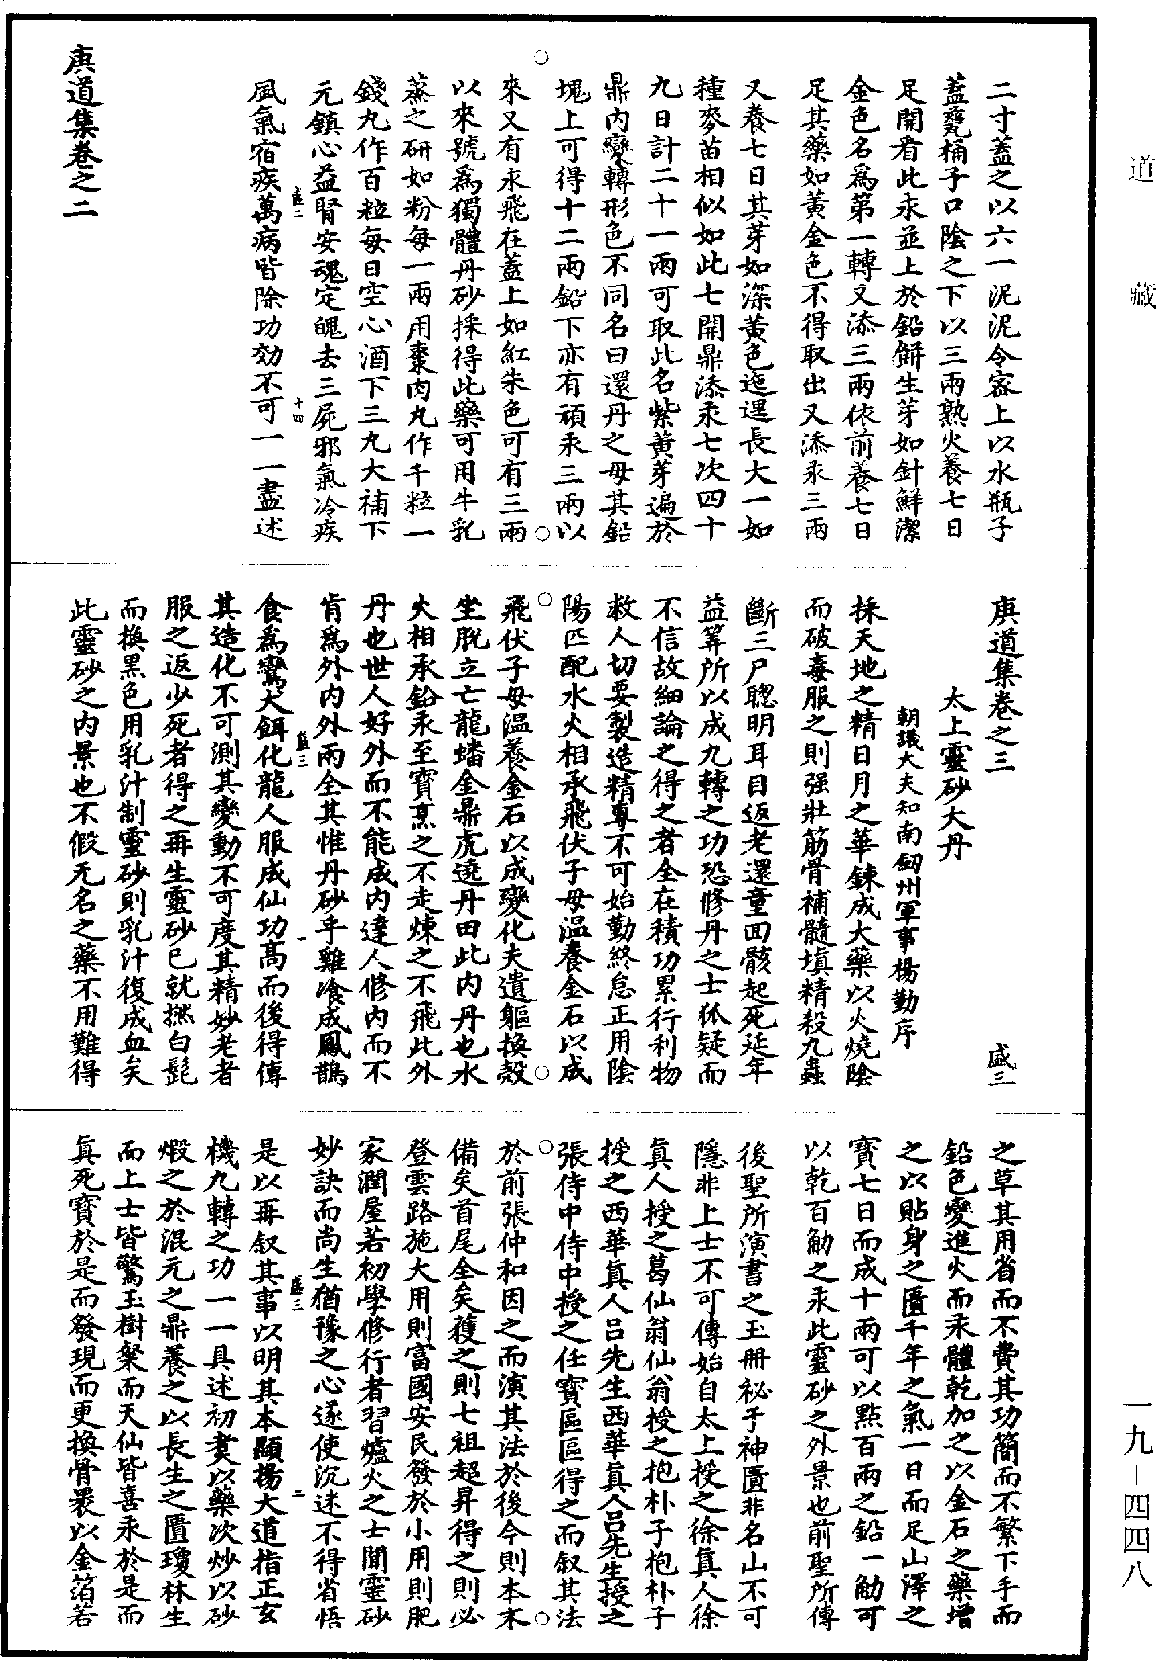 道藏
二寸蓋之以六一泥泥令密上以水瓶子
蓋甕桶子口陰之下以三兩熟火養七日
足開看此汞並上於鉛餅生芽如針鮮潔
金色名爲第一轉又添三兩依前養七日
足其藥如黃金色不得取出又添汞三兩
又養七日其芽如深黃色迤邐長大一如
種麥苗相似如此七開鼎添汞七次四十
九日計二十一兩可取此名紫黃芽遍於
鼎內變轉形色不同名曰還丹之母其鉛
塊上可得十二兩鉛下亦有頑汞三兩以
來又有汞飛在蓋上如紅朱色可有三兩
以來號爲獨體丹砂採得此藥可用牛乳
蒸之研如粉每一兩用棗肉丸作千粒一
錢丸作百粒每日空心酒下三九大補下
元鎮心益腎安魂定魄去三屍邪氣冷疾
盛二 十四
風氣宿疾萬病皆除功効不可一一盡述
庚道集卷之二
庚道集卷之三 盛三
太上靈砂大丹
朝議大夫知南劒州軍事楊勤序
採天地之精日月之華鍊成大藥以火燒陰
而破毒服之則强壯筋骨補髓塡精殺九蟲
斷三尸聰明耳目返老還童回骸起死延年
益筭所以成九轉之功恐修丹之士狐疑而
不信故細論之得之者全在積功累行利物
救人切要製造精專不可始勤終怠正用陰
陽匹配水火相承飛伏子母溫養金石以成
飛伏子母溫養金石以成變化夫遺軀換殼
坐脫立亡龍蟠金鼎虎遶丹田此內丹也水
火相承鉛汞至寶烹之不走煉之不飛此外
丹也世人好外而不能成內達人修內而不
肯爲外內外兩全其惟丹砂乎雞飡成鳳鵲
盛三 一
食爲鸞犬餌化龍人服成仙功髙而後得傳
其造化不可測其變動不可度其精妙老者
服之返少死者得之再生靈砂已就撚白髭
而換黑色用乳汁制靈砂則乳汁復成血矣
此靈砂之內景也不假无名之藥不用難得
之草其用省而不費其功簡而不繁下手而
鉛色變進火而汞體乾加之以金石之藥增
之以貼身之匱千年之氣一日而足山澤之
寶七日而成十兩可以點百兩之鉛一觔可
以乾百觔之汞此靈砂之外景也前聖所傳
後聖所演書之玉冊祕于神匱非名山不可
隱非上士不可傳始自太上授之徐真人徐
真人授之葛仙翁仙翁授之抱朴子抱朴子
授之西華真人吕先生西華真人吕先生授之
張侍中侍中授之任寶區區得之而叙其法
於前張仲和因之而演其法於後今則本末
備矣首尾全矣獲之則七祖超昇得之則必
登雲路施大用則富國安民發於小用則肥
家潤屋若初學修行者習爐火之士聞靈砂
妙訣而尚生猶豫之心遂使沉迷不得省悟
盛三 二
是以再叙其事以明其本顯揚大道指正玄
機九轉之功一一具述初煑以藥次炒以砂
煅之於混元之鼎養之以長生之匱瓊林生
而上士皆驚玉樹粲而天仙皆喜汞於是而
真死寶於是而發現而更換骨裹以金箔若
一九-四四八